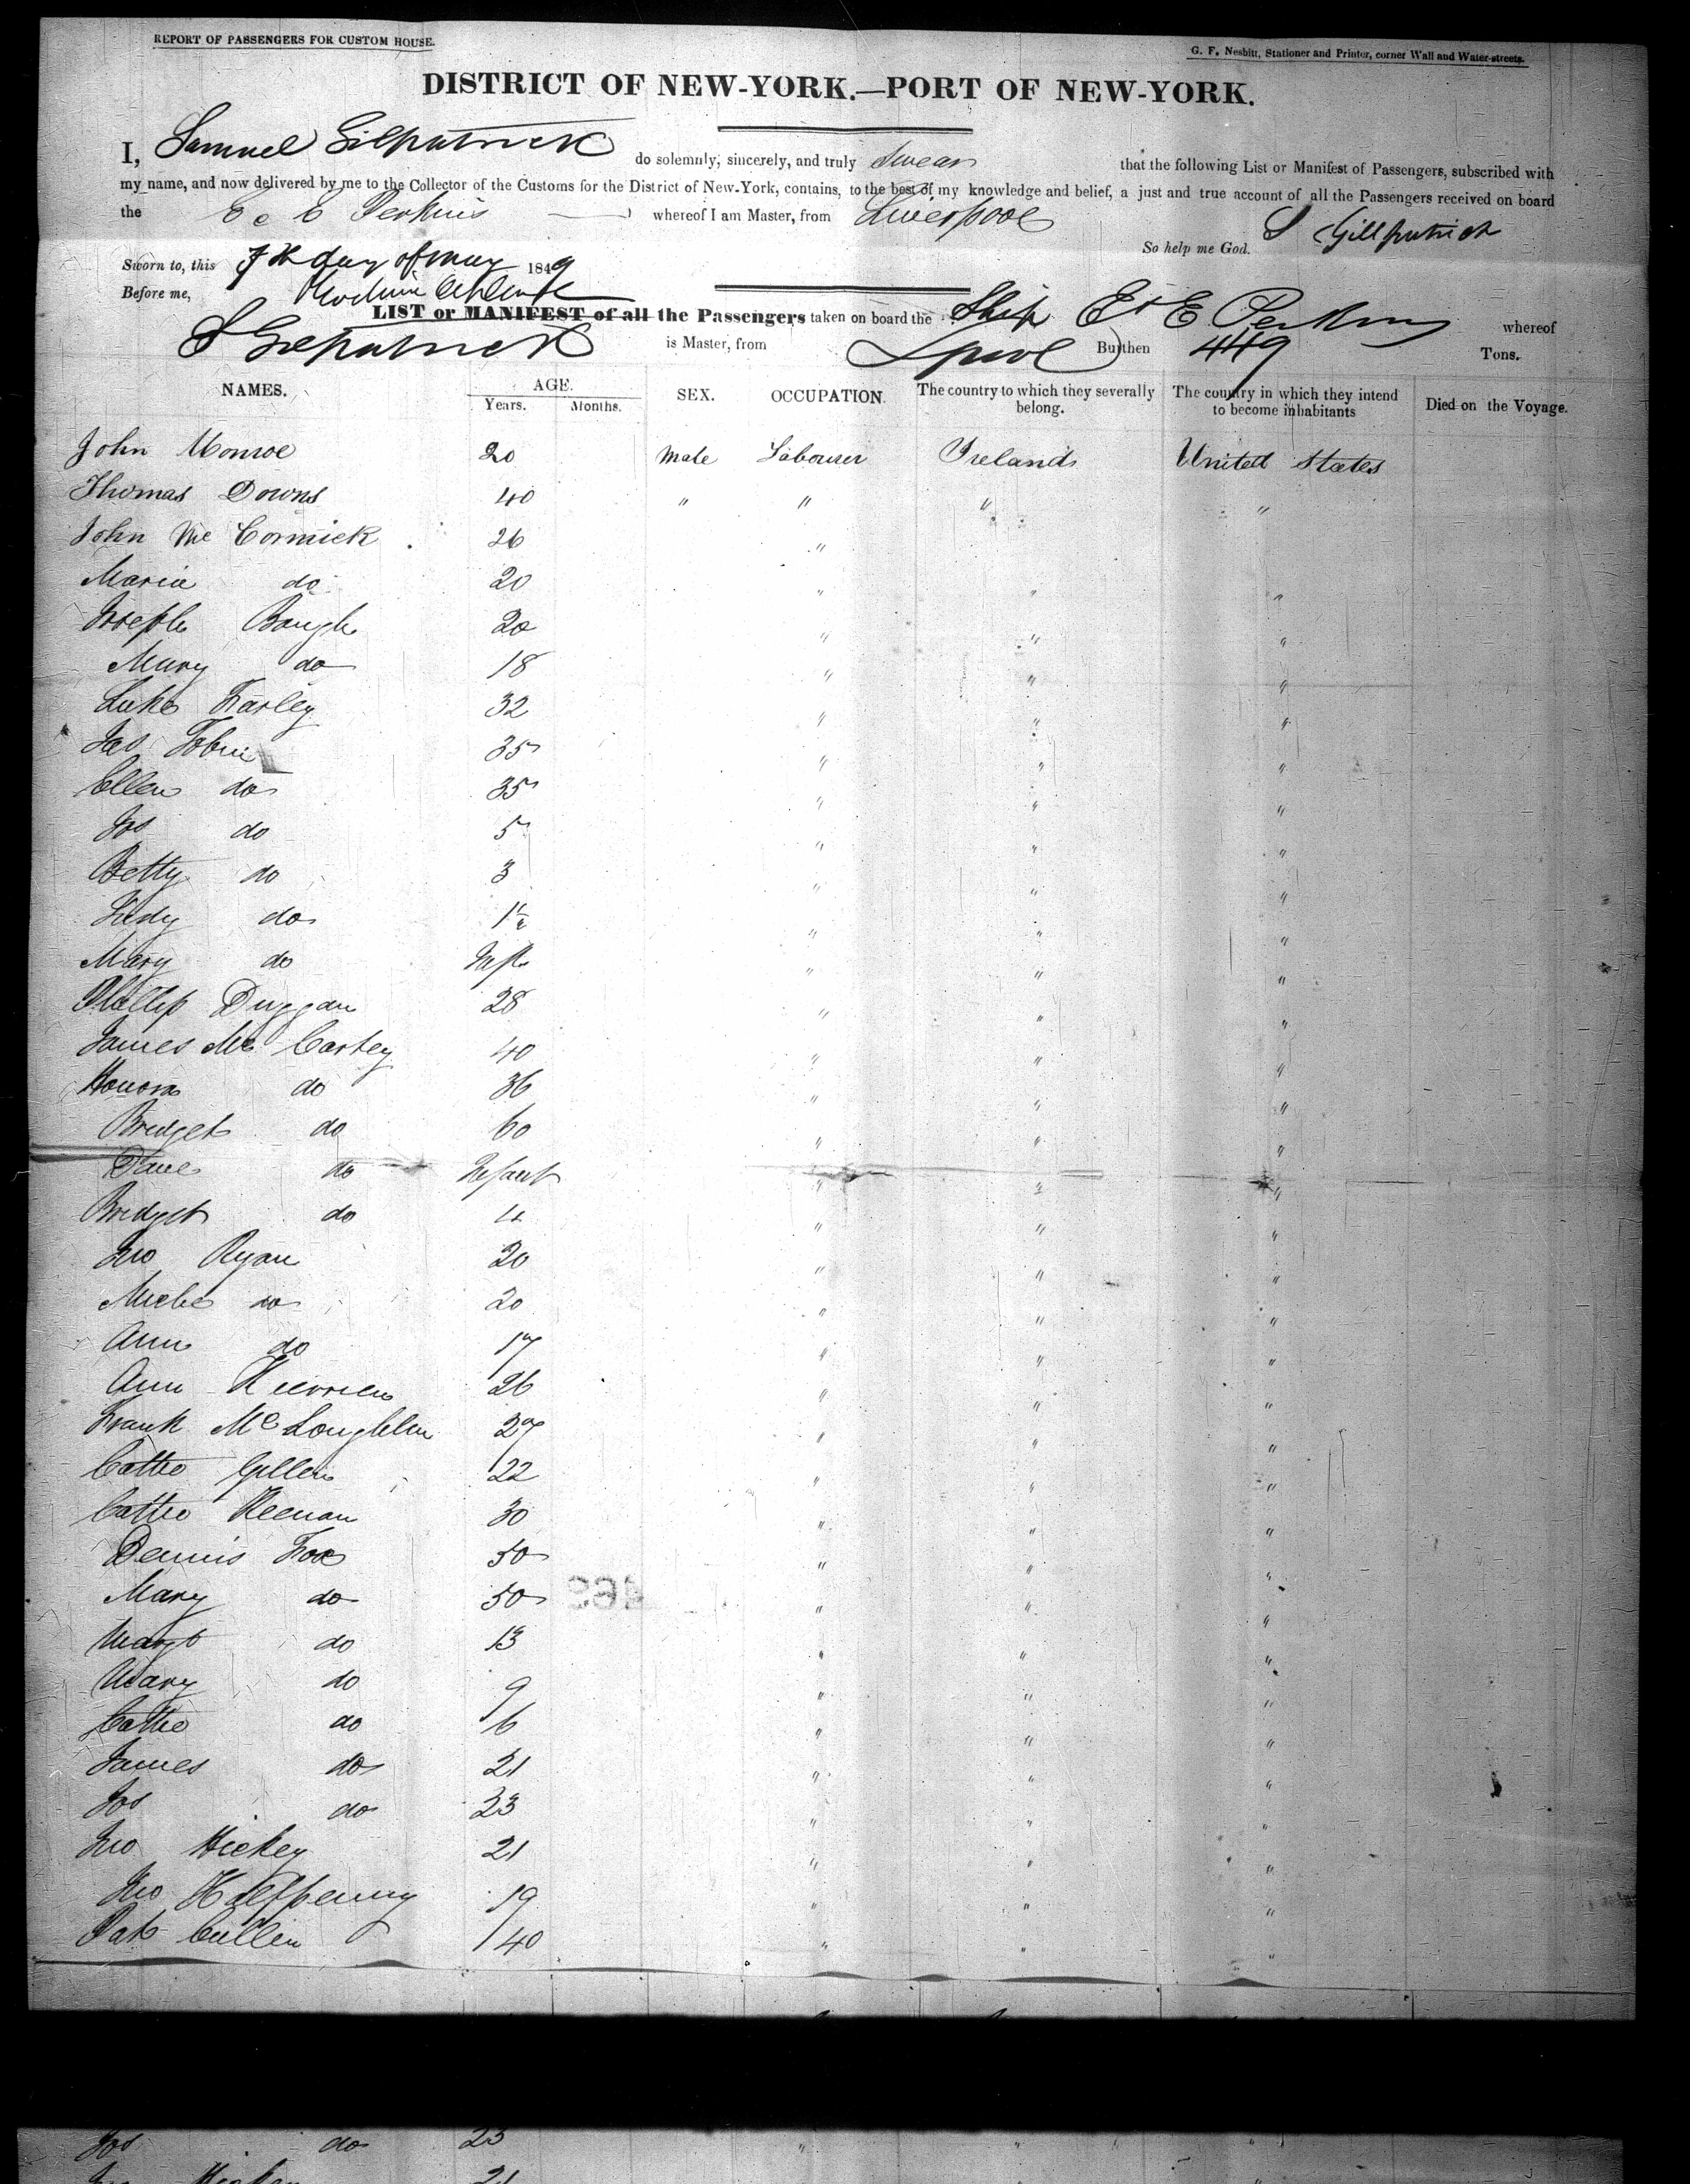 REPORT OF PASSENGERS FOR CUSTOM HOUSE.
G. F. Nesbitt, Stationer and Printer, corner Wall and Water-streets.
DISTRICT OF NEW-YORK.—PORT OF NEW-YORK.
I, Samuel Gilpatrick do solemnly, sincerely, and truly Swear that the following List or Manifest of Passengers, subscribed with
my name, and now delivered by me to the Collector of the Customs for the District of New-York, contains, to the best of my knowledge and belief, a just and true account of all the Passengers received on board
the E & E Perkins whereof I am Master, from Liverpool
So help me God. S Gillpatrick
Sworn to, this 7th day of May 1849
Before me,
LIST or MANIFEST of all the Passengers taken on board the Ship E & E Perkins whereof
S Gilpatrick is Master, from Lpool Burthen 449 Tons.
NAMES. AGE. Years. Months. SEX. OCCUPATION. The country to which they severally belong. The country in which they intend to become inhabitants Died on the Voyage.
John Monroe 20 Male Labourer Ireland United States
Thomas Downs 40 " " " "
John Mc Cormick 26 "
Maria do 20 " " "
Joseph Baugh 20 " " "
Mary do 18 " " "
Luke Farley 32 " " "
Jas Tobin 35 " " "
Ellen do 35 " " "
Jos do 5 " " "
Betty do 3 " " "
do 1½ " " "
Mary do Inft " " "
Phillip Duggan 28 " " "
James Mc Cartey 40 " " "
Honora do 36 " " "
Bridget do 60 " " "
do Infant " " "
Bridget do 4 " " "
Jno Ryan 20 " " "
Michl do 20 " " "
Ann do 17 " " "
Ann 26 " " "
Frank McLoughlin 27 " " "
Cathe Gillen 22 " " "
Cathe Keenan 30 " " "
Dennis Fox 50 " " "
Mary do 50 " " "
Margt do 13 " " "
Mary do 9 " " "
Cathe do 6 " " "
James do 21 " " "
Jos do 23 " " "
Jno Hickey 21 " " "
Jno Halfpenny 19 " " "
Pat Cullin 40 " " "
Jos do 23 " " "
Jno Hickey 21